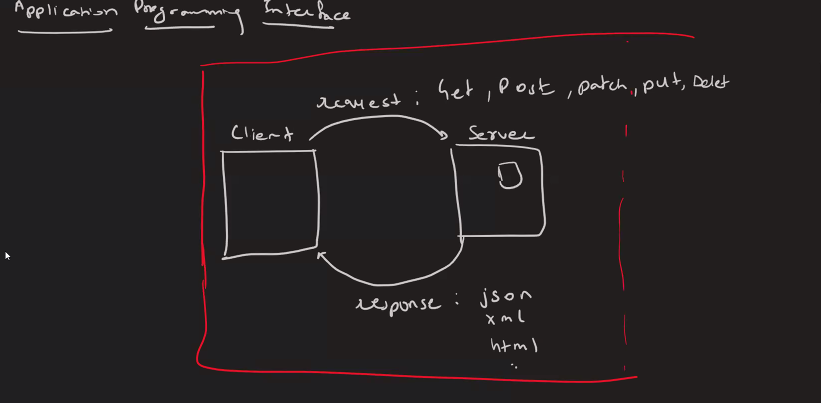 Application Programming Interface
request : Get, Post, patch, put, Delet
Client
Server
response : json
xml
html